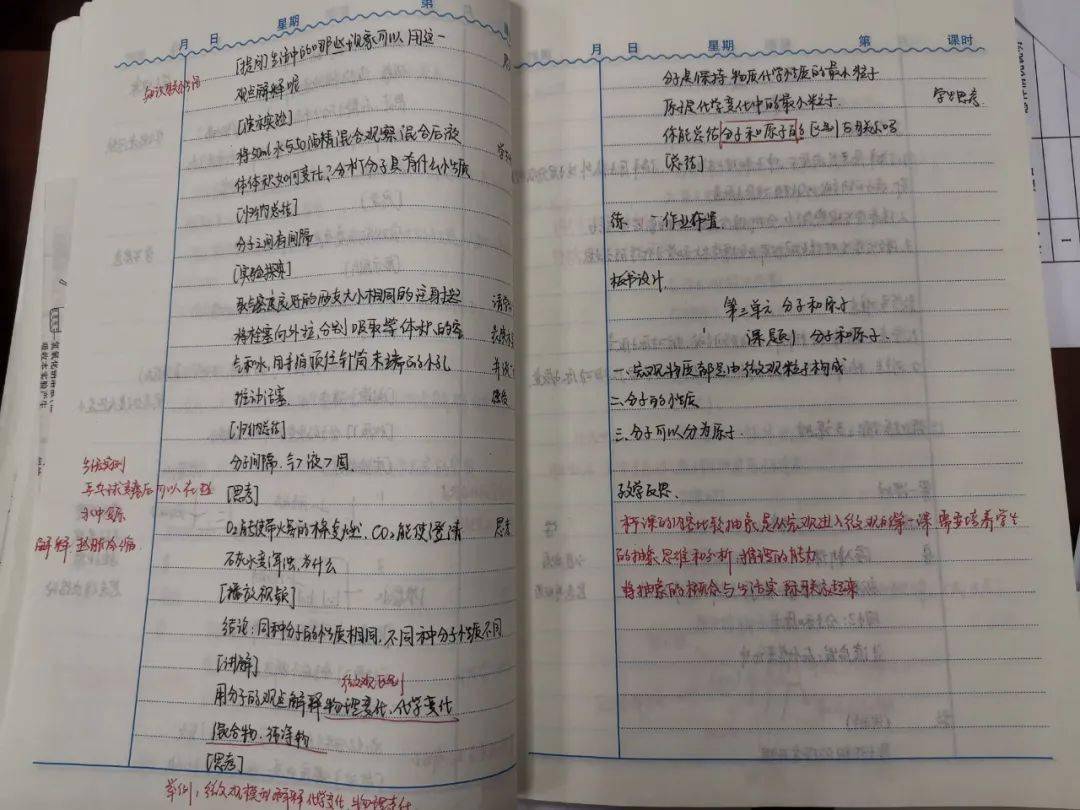 月 日 星期 第
[提问] 生活中的哪些现象可以用这一
观点解释呢
[演示实验]
将50ml水与50酒精混合观察混合后液
体体积如何变化?分析分子具有什么性质
[归纳总结]
分子之间有间隔
[实验探究]
取密度良好的两支大小相同的注射器
将栓塞向外拉,分别吸取等体积的空
气和水,用手指顶住针筒末端的小孔
推动活塞.
[归纳总结]
分子间隔.气>液>固.
生活实例
乒乓球
可以在热
水中复原
解释 热胀冷缩
[思考]
O₂能使带火星的木条复燃. CO₂能使澄清
思考
石灰水变浑浊.为什么
[播放视频]
结论:同种分子的性质相同,不同种分子性质不同
[讲解]
微观区别
用分子的观点解释物理变化.化学变化
混合物.纯净物
[思考]
举例:微观模型解释化学变化 物理变化
月 日 星期 第 课时
分子是保持物质化学性质的最小粒子
原子是化学变化中的最小粒子.
学生思考
你能总结分子和原子的区别与联系吗
[总结]
练习 作业布置.
板书设计.
第三单元 分子和原子
课题1 分子和原子.
一.宏观物质都是由微观粒子构成
二.分子的性质
三.分子可以分为原子.
教学反思.
本课的内容比较抽象是从宏观进入微观的第一课 需要培养学生
的抽象思维和分析.推理的能力
将抽象的概念与生活实际联系起来